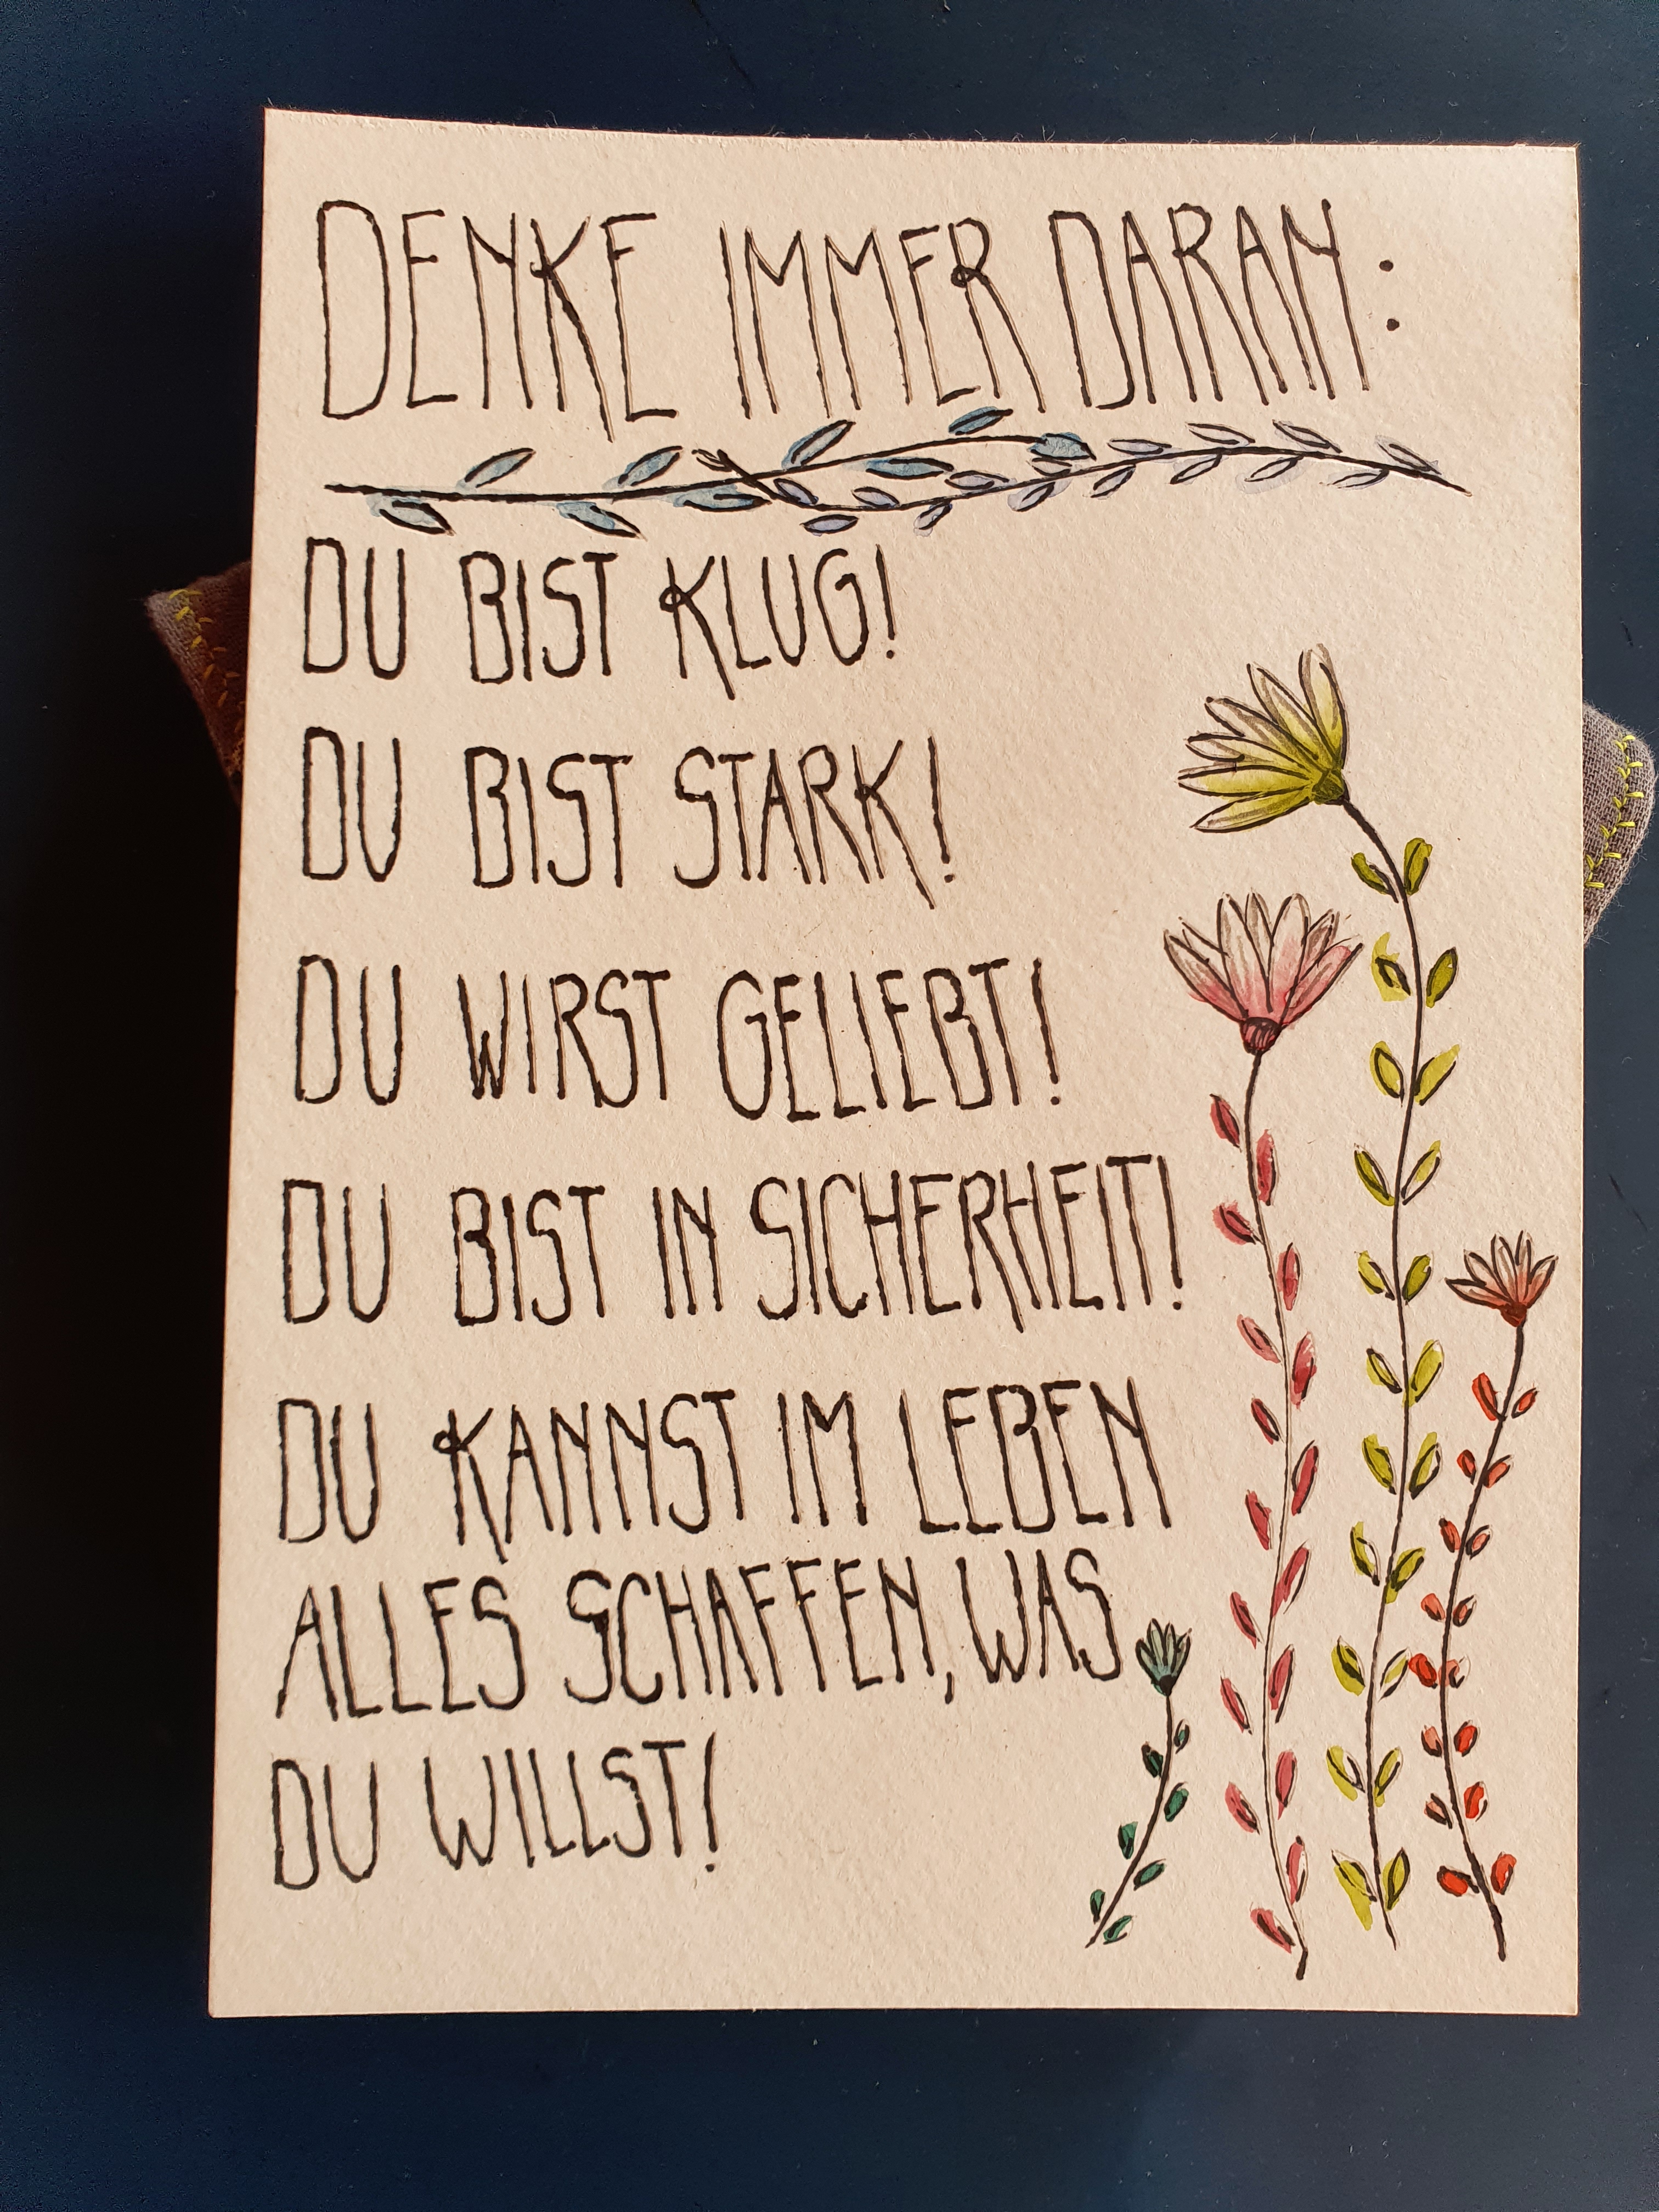 DENKE IMMER DARAN:
DU BIST KLUG!
DU BIST STARK!
DU WIRST GELIEBT!
DU BIST IN SICHERHEIT!
DU KANNST IM LEBEN
ALLES SCHAFFEN, WAS
DU WILLST!